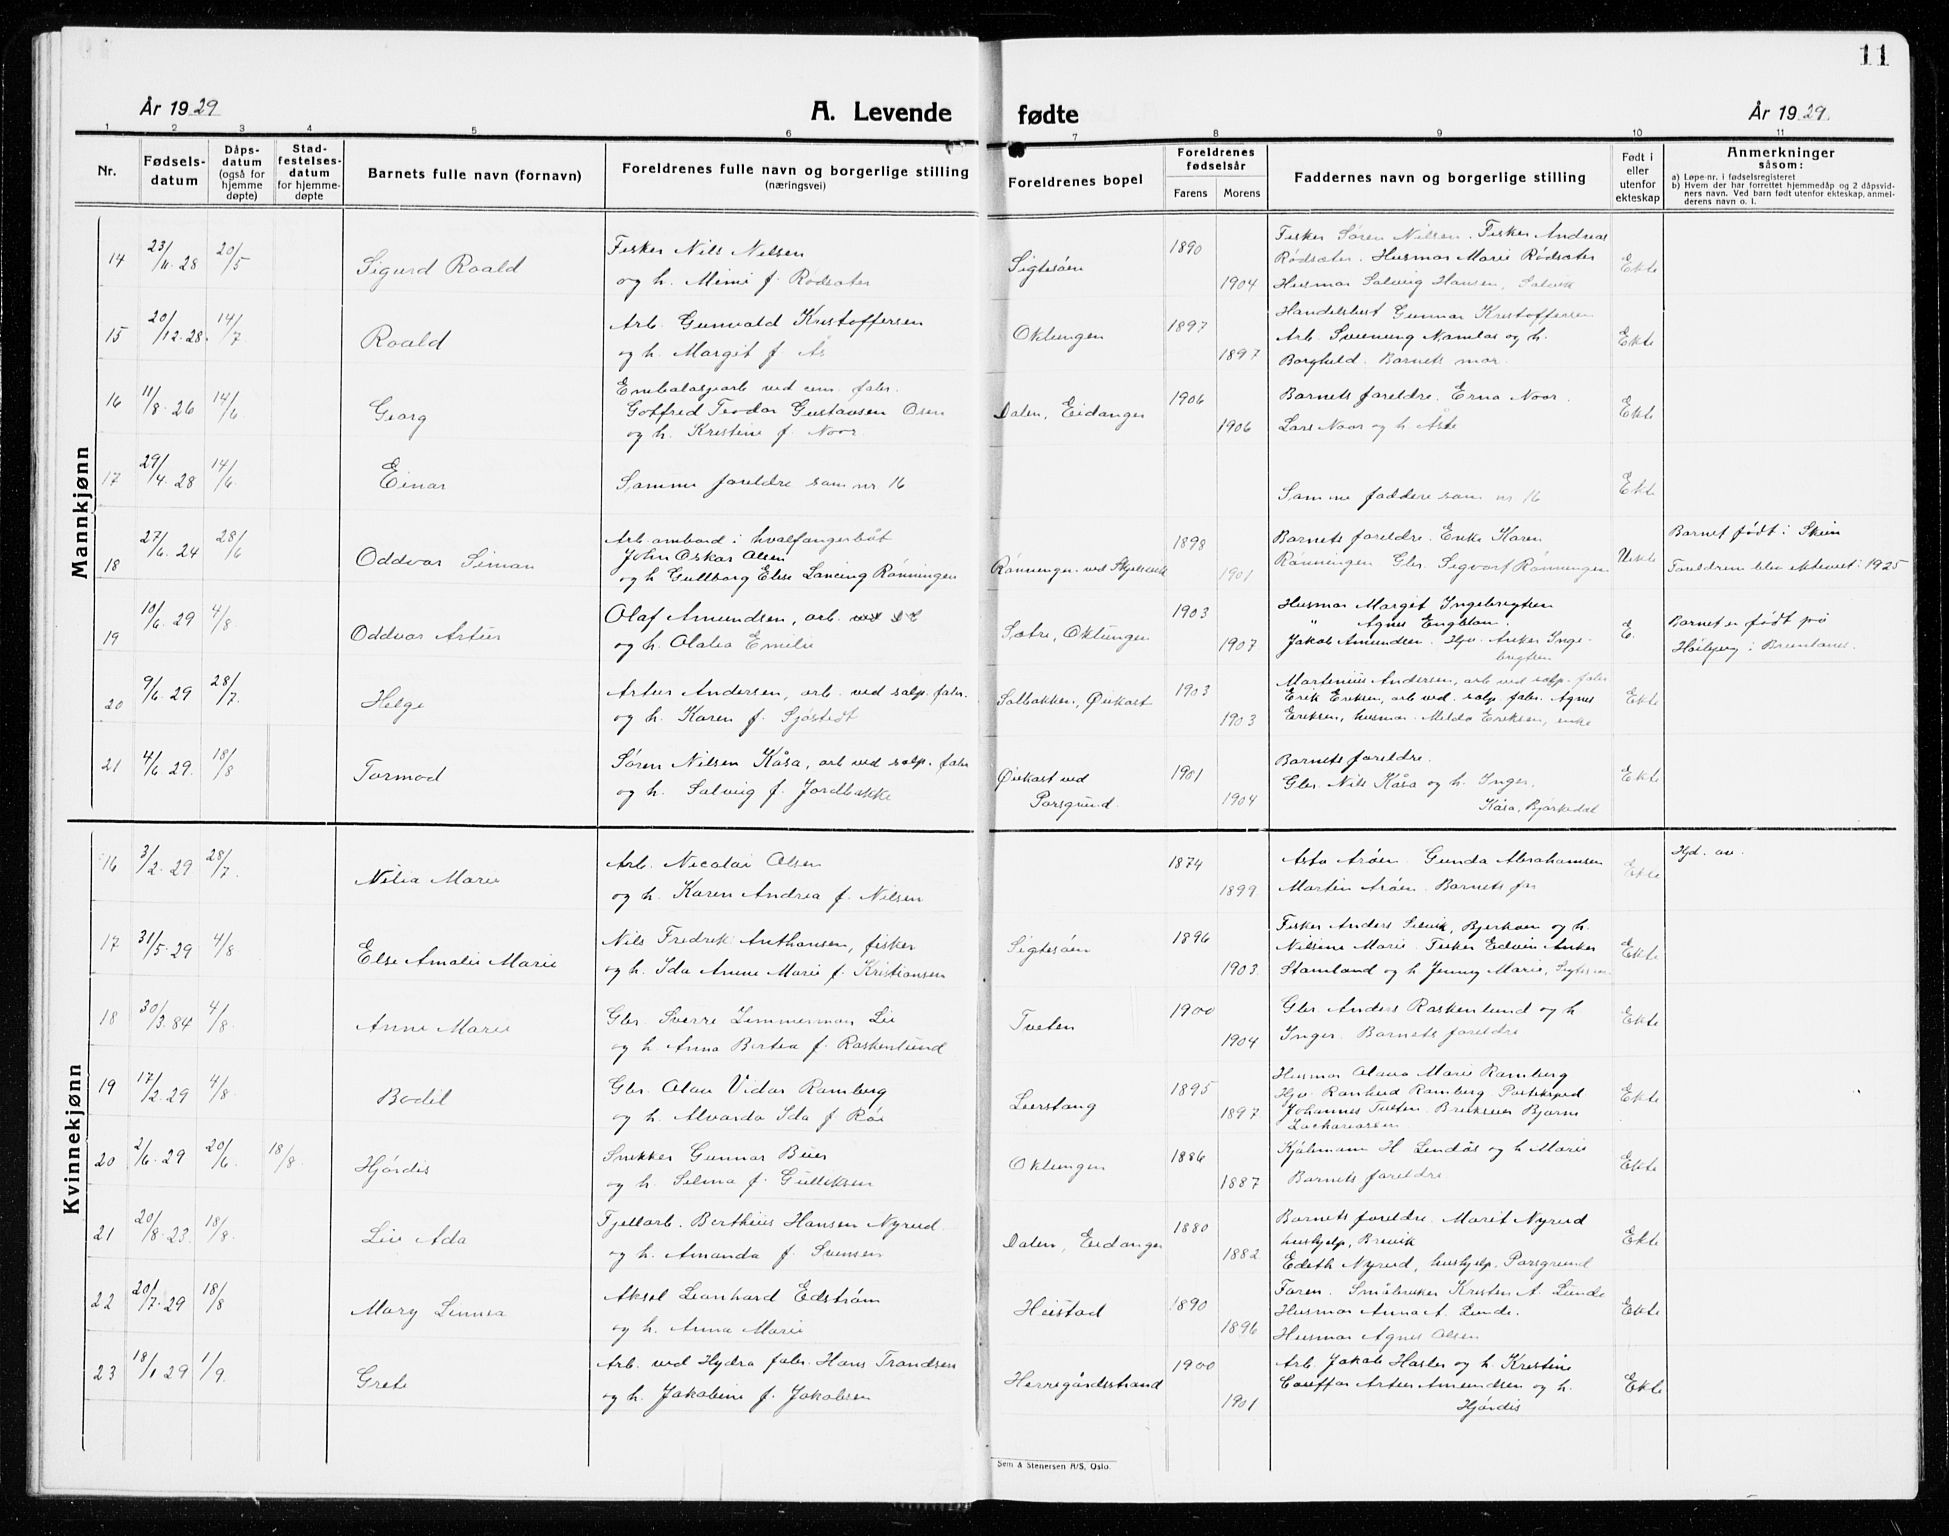 11
År 1929
A. Levende
fødte
År 1929.
1 2 3 4 5 6 7 8 9 10 11
Nr.
Fødselsdatum
Dåpsdatum (også for hjemme døpte)
Stadfestelsesdatum for hjemmedøpte
Barnets fulle navn (fornavn)
Foreldrenes fulle navn og borgerlige stilling (næringsvei)
Foreldrenes bopel
Foreldrenes fødselsår
Farens
Morens
Faddernes navn og borgerlige stilling
Født i eller utenfor ekteskap
Anmerkninger
såsom:
a) Løpe-nr. i fødselsregisteret
b) Hvem der har forrettet hjemmedåp og 2 dåpsvidners navn. Ved barn født utenfor ekteskap, anmelderens navn o. l.
Mannkjønn
14 23/11·28 20/5 Sigurd Roald
Fisker Nils Nilsen
og h. Mimi f. Rødsæter
Sigtesøen 1890 1904
Fisker Søren Nilsen. Fisker Andreas
Rødsæter. Husmor Marie Rødsæter
Husmor Solveig Hansen, Salvik
Ekte
15 20/12·28. 14/7 Roald
Arb. Gunvald Kristoffersen
og h. Margit f. Ås
Oklungen 1897 1897
Handelsbest Gunnar Kristoffersen
Arb. Sveinung Namløs og h.
Borghild. Barnets mor.
Ekte
16 11/8·26 14/6 Georg
Embalasjearb ved cem. fabr.
Gotfred Teodor Gustavsen Osen
og h. Kristine f. Noor.
Dalen, Eidanger 1906 1906
Barnets foreldre. Erna Noor.
Lars Noor og h Åste
Ekte
17 29/4·28 14/6 Einar
Samme foreldre som nr 16
Samme faddere som nr 16
Ekte
18 27/6·24 28/6 Oddvar Simon
Arb. ombord i hvalfangerbåt
John Oskar Olsen
og h Gullborg Elise Lancing Rønningen
Rønningen ved Skjelsvik 1898 1901
Barnets foreldre. Enke Karen
Rønningen Gbr. Sigvart Rønningen
Uekte
Barnet født i Skien
Foreldrene blev ektevet i 1925
19 10/6·29 4/8. Oddvar Artur
Olaf Amundsen, arb.
og h. Olalea Emilie
Sætre, Oklungen 1903 1907
Husmor Margit Ingebrigtsen
" Agnes Engblom.
Jakob Amundsen. Hjv. Anker Ingebrigtsen
E.
Barnet er født på
Høibjerg i Brunlanes.
20 9/6·29 28/7. Helge
Artur Andersen, arb. ved salp. fabr.
og h. Karen f. Sjøstedt
Solbakken, Ørekast 1903 1903
Martinius Andersen, arb ved salp. fabr
Erik Eriksen, arb ved. salp. fabr. Agnes
Eriksen, husmor. Milda Eriksen, enke
Ekte
21 4/6·29. 18/8 Tormod
Søren Nilsen Kåsa, arb ved salp. fabr
og h. Solveig f. Jordbakke
Ørekast ved
Porsgrund. 1901 1904
Barnets foreldre.
Gbr. Nils Kåsa og h. Inger,
Kåsa, Bjørkedal
Ekte
Kvinnekjønn
16 3/2·29 28/7. Nilia Marie
Arb. Nicolai Olsen
og h. Karen Andrea f. Nilsen
1874 1899
Asta Arøen. Gunda Abrahamsen
Martin Arøen. Barnets far
Ekte
Hjd. av.
17 31/5·29 4/8. Else Amalie Marie
Nils Fredrik Anthonsen, fisker
og h. Ida Anne Marie f. Kristiansen
Sigtesøen 1896 1903.
Fisker Anders Salvik, Bjerkøen og h.
Nilsine Marie. Fisker Edvin Anker
Stamland og h. Jenny Marie,
Ekte
18 30/3.84 4/8. Anne Marie
Gbr. Sverre Zimmerman Lie
og h Anna Bertea f. Raskenlund
Tveten 1900 1904
Gbr Anders Raskenlund og h
Inger. Barnets foreldre
Ekte
19 17/2·29 4/8. Bodil
Gbr. Olav Vidar Ramberg
og h. Alvarda Ida f Røe
Leerstang 1895 1897
Husmor Olava Marie Ramberg
Hjv. Ranheid Ramberg Postekspd
Johannes Tveten. Bjarne
Zachariassen
Ekte
20 2/6·29 20/6. 18/8. Hjørdis
Snekker Gunnar Buer
og h. Selma f. Gulliksen
Oklungen 1886 1887
Kjøbmann H Lindås og h Marie
Barnets foreldre
Ekte
21 20/8·23. 18/8. Liv Ada
Fjellarb. Berthius Hansen Nyrud.
og h. Amanda f. Svensen
Dalen, Eidanger 1880 1882
Barnets foreldre. Marit Nyrud
hushjelp, Brevik
Edith Nyrud, hushjelp, Porsgrund
Ekte
22 20/7·29 18/8 Mary Linnea
Aksel Leonhard Edstrøm
og h. Anna Marie
Heistad 1890 1896
Faren. Småbruker Kristen A. Lunde
Husmor Anna A. Lunde.
Husmor Agnes Olsen
Ekte
23 18/1 29 1/9. Grete
Arb. ved Hydro fabr. Hans Trandsen
og h. Jakobine f. Jakobsen
Herregårdsstrand 1900 1901
Arb. Jakob Hasler og h. Kristine
Artur Amundsen og h.
Hjørdis
Ekte
Sem & Stenersen A/S, Oslo.